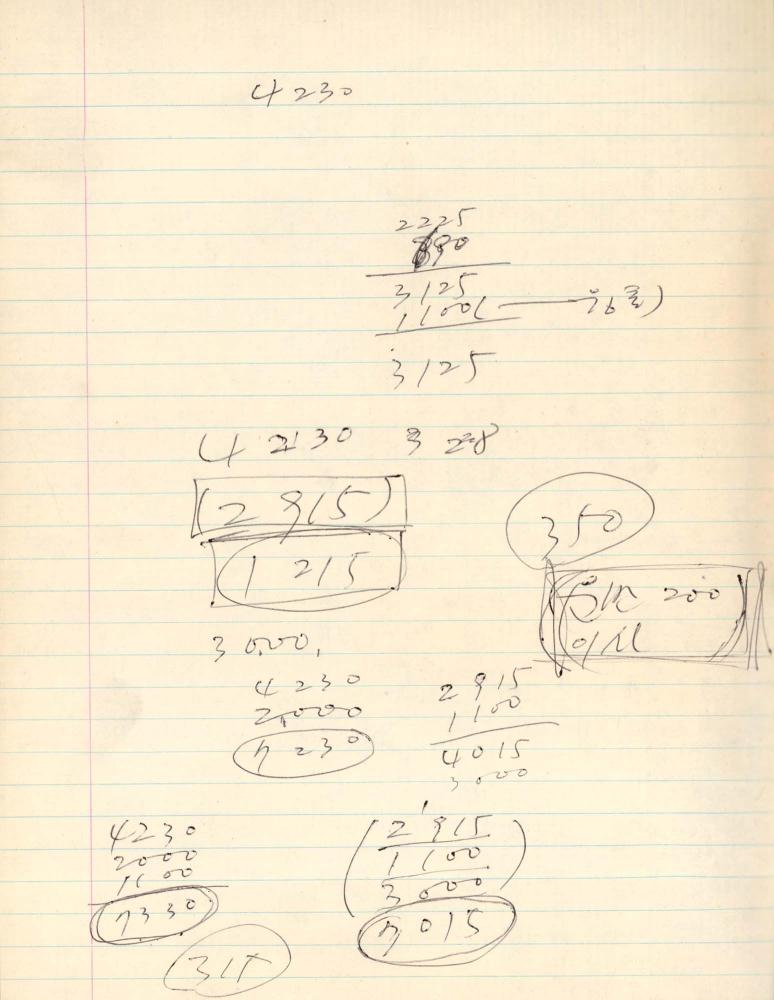 4230
2225
890
3125
1100
3125
4 2130 3 228
(2 915)
1 215
350
200
3000,
4230
2,000
7230
2915
1100
4015
3000
4230
2000
1100
7330
2915
1100
3000
7015
315